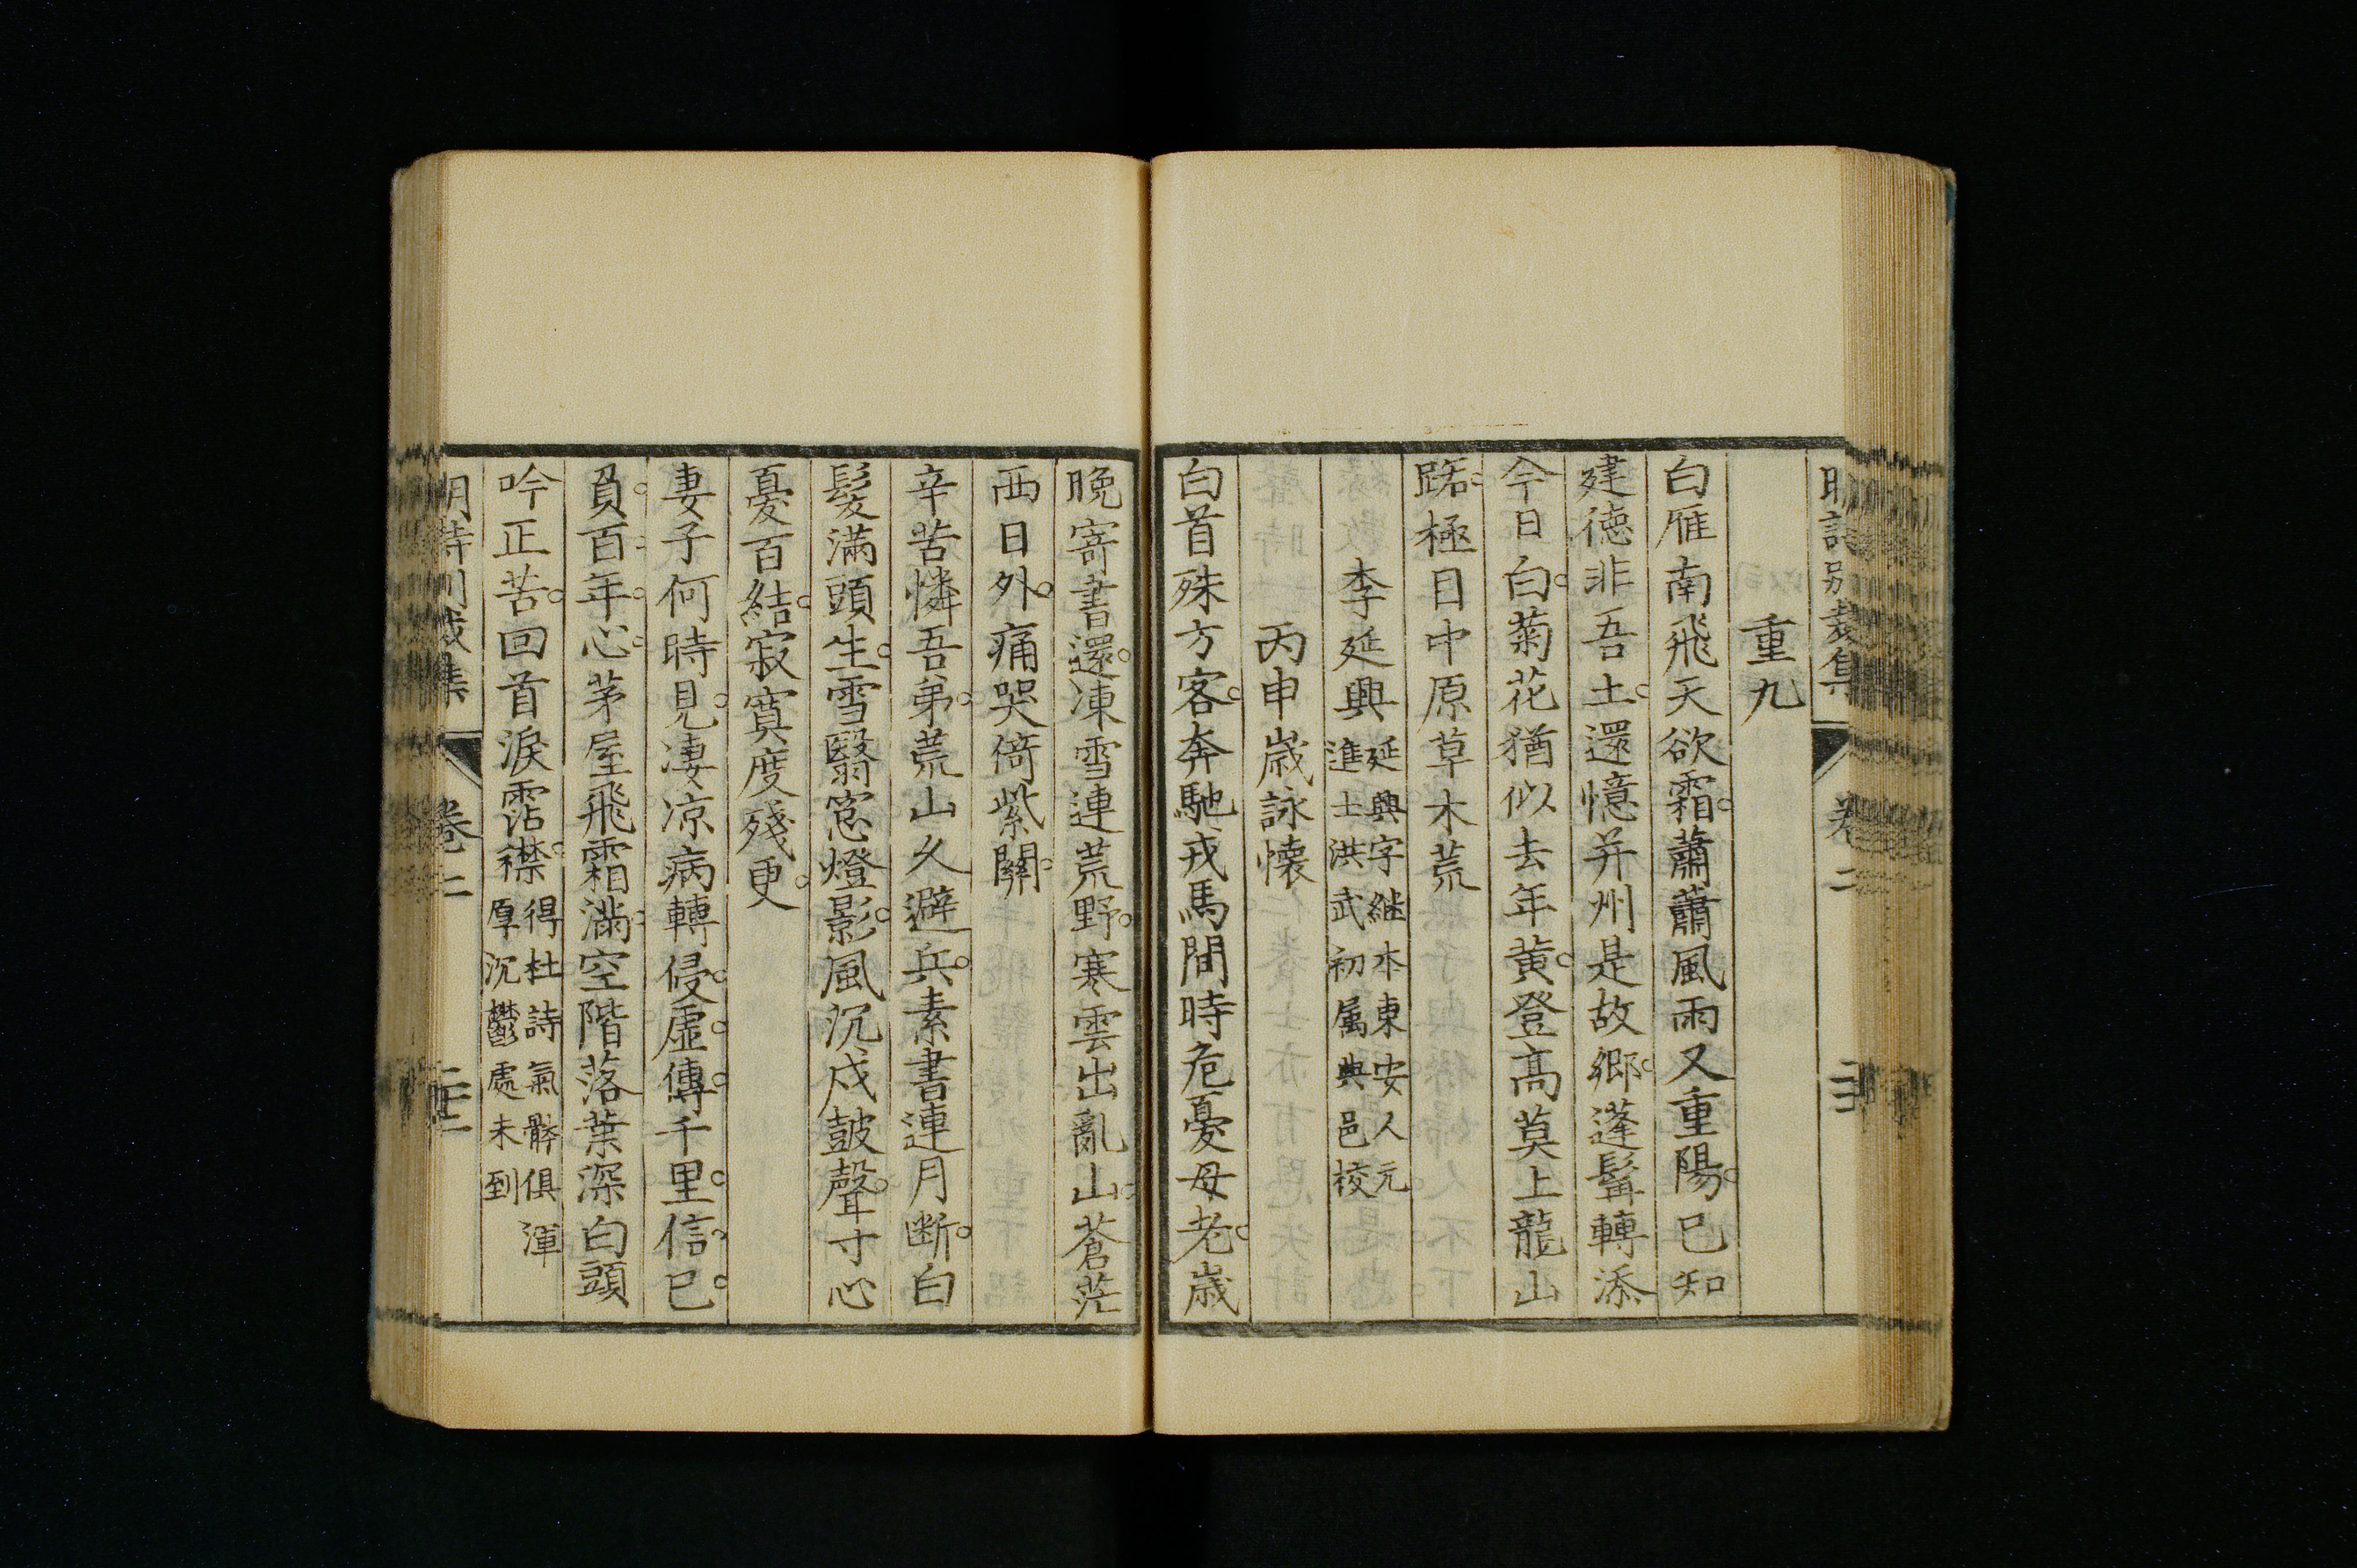 明詩別裁集 卷二
重九
白雁南飛天欲霜。蕭蕭風雨又重陽。已知
建德非吾土。還憶并州是故鄉。蓬鬢轉添
今日白。菊花猶似去年黄。登高莫上龍山
路。極目中原草木荒
李延興
延興字繼本東安人元
進士洪武初属典邑校
丙申歲詠懷
白首殊方客。奔馳戎馬間時危憂母老。歲
晚寄書還。凍雪連荒野。寒雲出亂山。蒼茫
西日外。痛哭倚紫關。
辛苦憐吾弟。荒山久避兵。素書連月断。白
髮滿頭生。雪翳窓燈影。風沉戍鼓聲。寸心
憂百結。寂寞度殘更。
妻子何時見。凄凉病轉侵。虛傳千里信。已
負百年心。茅屋飛霜滿。空階落葉深白頭
吟正苦。回首淚霑襟。
得杜詩氣骿俱渾
厚沉鬱處未到
明詩別裁集 卷二